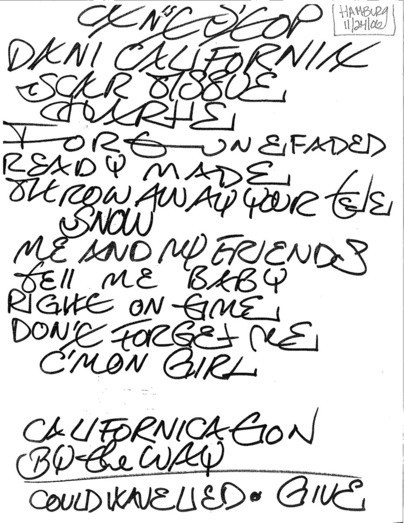 CAN'T STOP
HAMBURG
11/29/06
DANI CALIFORNIA
SCAR TISSUE
CHARLIE
FOR G - UNEFADED
READY MADE
THROW AWAY YOUR tele
SNOW
ME AND MY FRIENDS
tell ME BABY
RIGHT ON tIME
DON'T FORGET ME
C'MON GIRL
CALIFORNICATION
BY the WAY
COULD HAVE LIED • GIVE